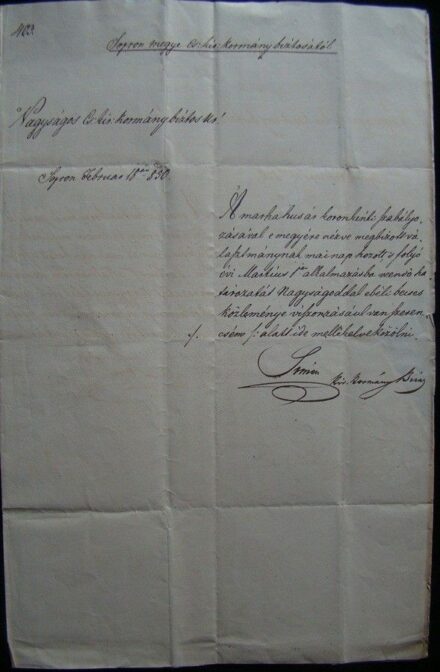 Sopron megye cs: kir: kormány biztosától
Nagyságos Cs. kir. kormánybiztos Úr!
Sopron Februar 18án 850.
A marha hus ár koronkénti szabályo-
zásával e megyére nézve megbizott vá-
lasztmánynak mai nap hozott s folyó
évi Martius 1ső alkalmazásba veendő ha-
tározatát Nagyságoddal ebéli becses
közleménye viszonzásául van szeren-
csém ·/· alatt ide mellékelve közölni.
·/.
kir. kormány Biztos